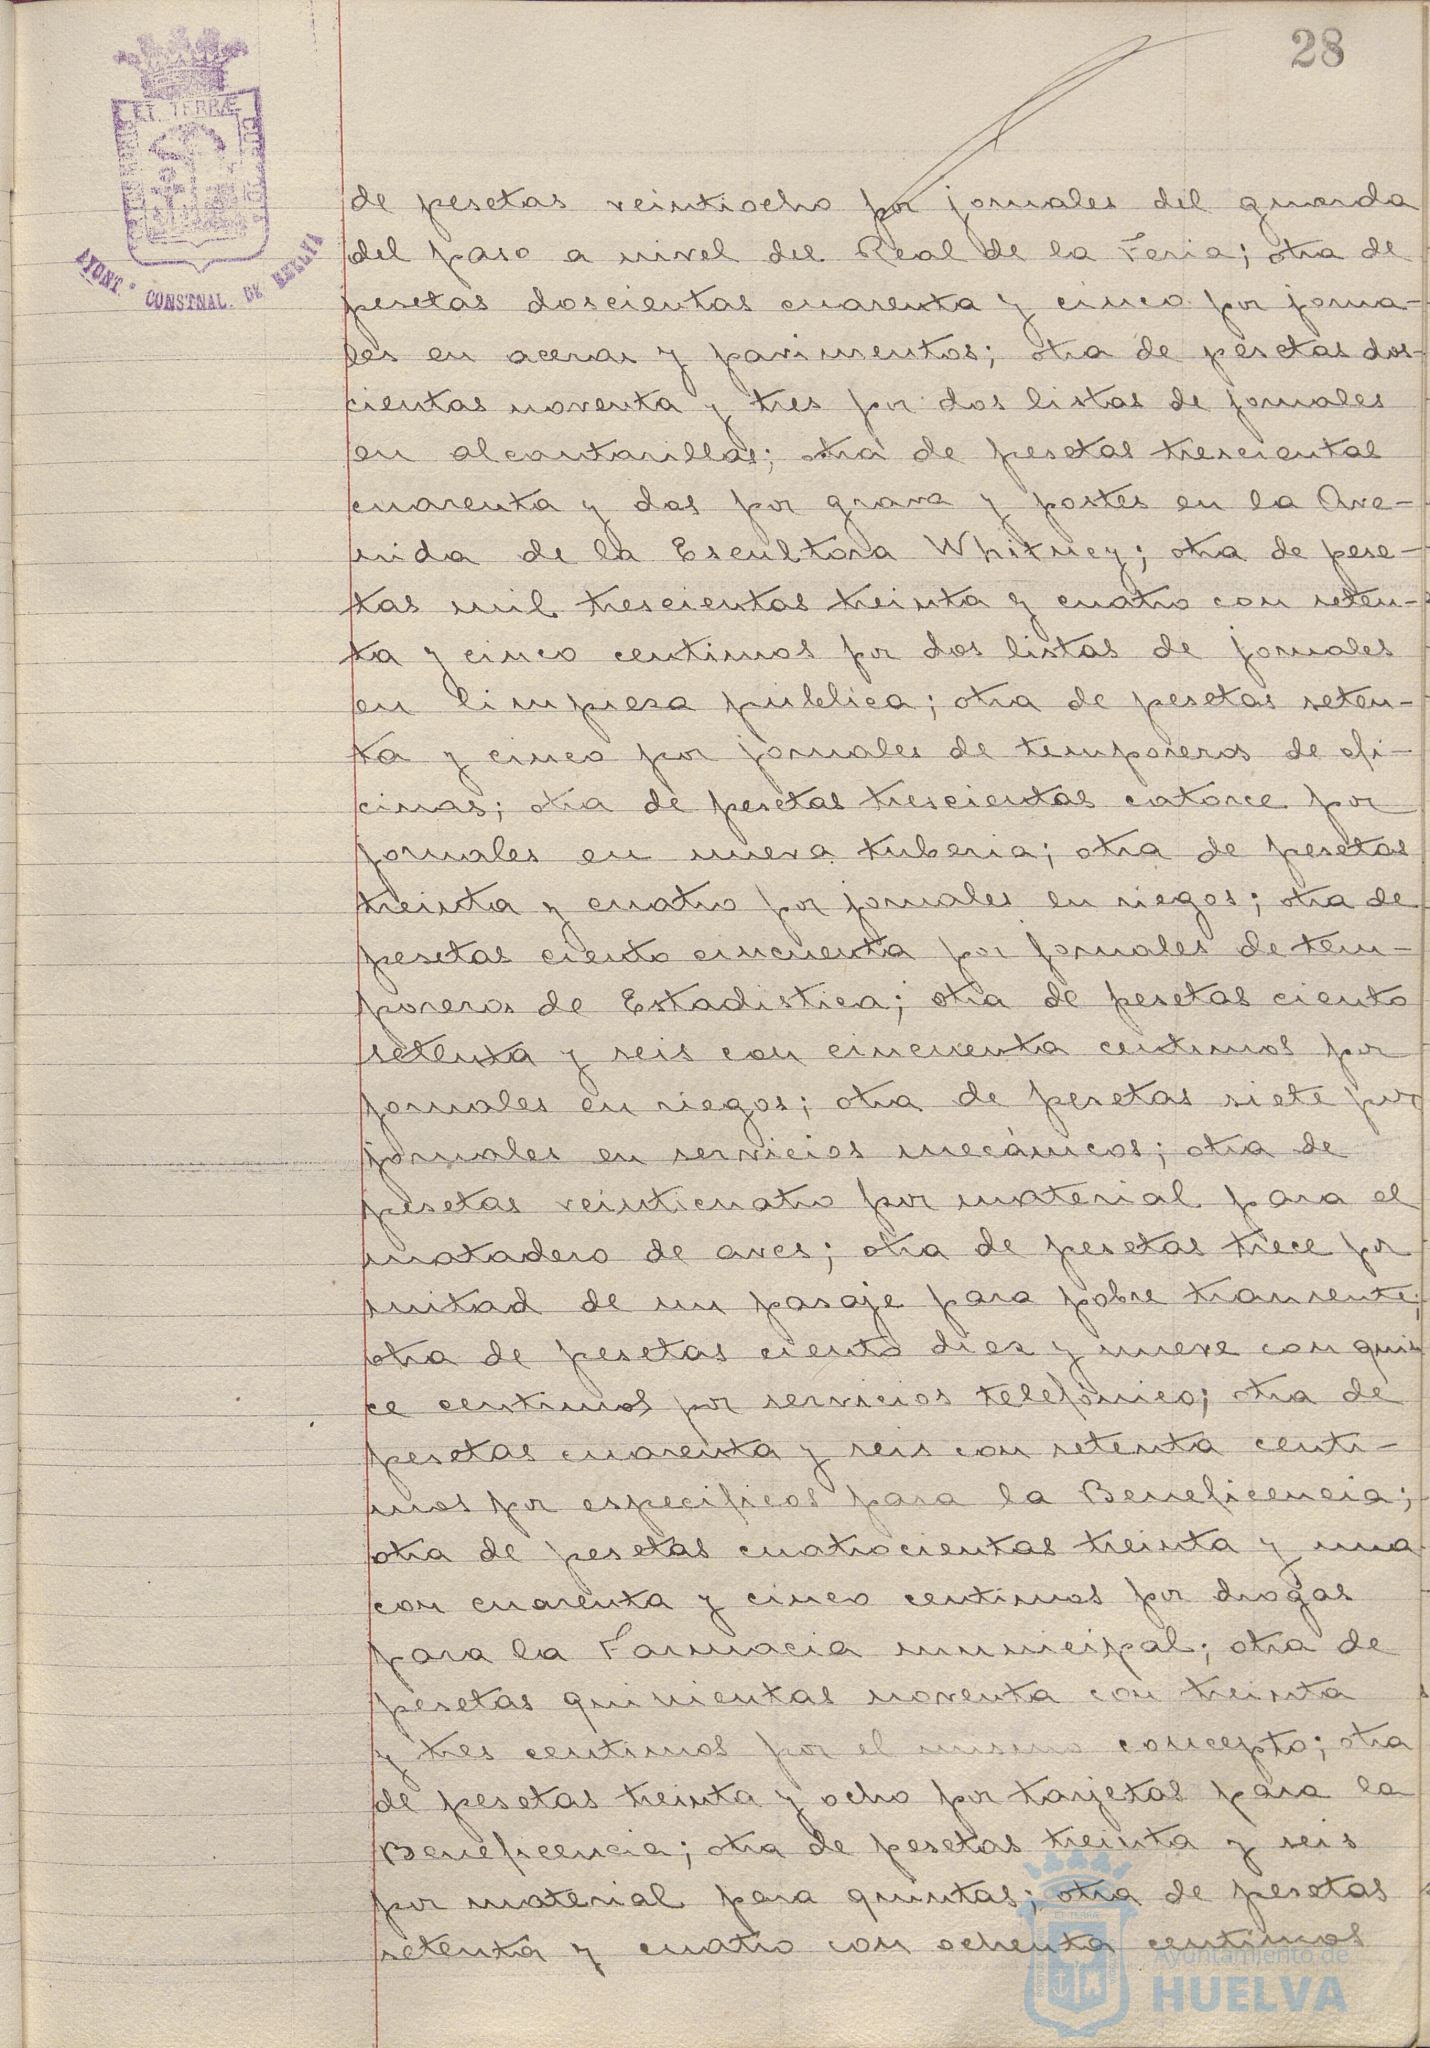 28
ET TERRÆ
AYONT.º CONSTNAL. DE HUELVA
de pesetas veintiocho por jornales del guarda
del paso a nivel del Real de la Feria; otra de
pesetas doscientas cuarenta y cinco por jorna-
les en aceras y pavimentos; otra de pesetas dos-
cientas noventa y tres por dos listas de jornales
en alcantarillas; otra de pesetas trescientas
cuarenta y dos por grava y postes en la Ave-
nida de la Escultora Whitney; otra de pese-
tas mil trescientas treinta y cuatro con seten-
ta y cinco centimos por dos listas de jornales
en limpieza pública; otra de pesetas seten-
ta y cinco por jornales de temporeros de ofi-
cinas; otra de pesetas trescientas catorce por
jornales en nueva tuberia; otra de pesetas
treinta y cuatro por jornales en riegos; otra de
pesetas ciento cincuenta por jornales de tem-
poreros de Estadistica; otra de pesetas ciento
setenta y seis con cincuenta centimos por
jornales en riegos; otra de pesetas siete por
jornales en servicios mecánicos; otra de
pesetas veinticuatro por material para el
matadero de aves; otra de pesetas trece por
mitad de un pasaje para pobre transente;
otra de pesetas ciento diez y nueve con quin
ce centimos por servicios telefónico; otra de
pesetas cuarenta y seis con setenta centi-
mos por especificos para la Beneficencia;
otra de pesetas cuatrocientas treinta y una
con cuarenta y cinco centimos por drogas
para la Farmacia municipal; otra de
pesetas quinientas noventa con treinta
y tres centimos por el mismo concepto; otra
de pesetas treinta y ocho por tarjetas para la
Beneficencia; otra de pesetas treinta y seis
por material para quintas; otra de pesetas
setenta y cuatro con ochenta centimos
Ayuntamiento de
HUELVA